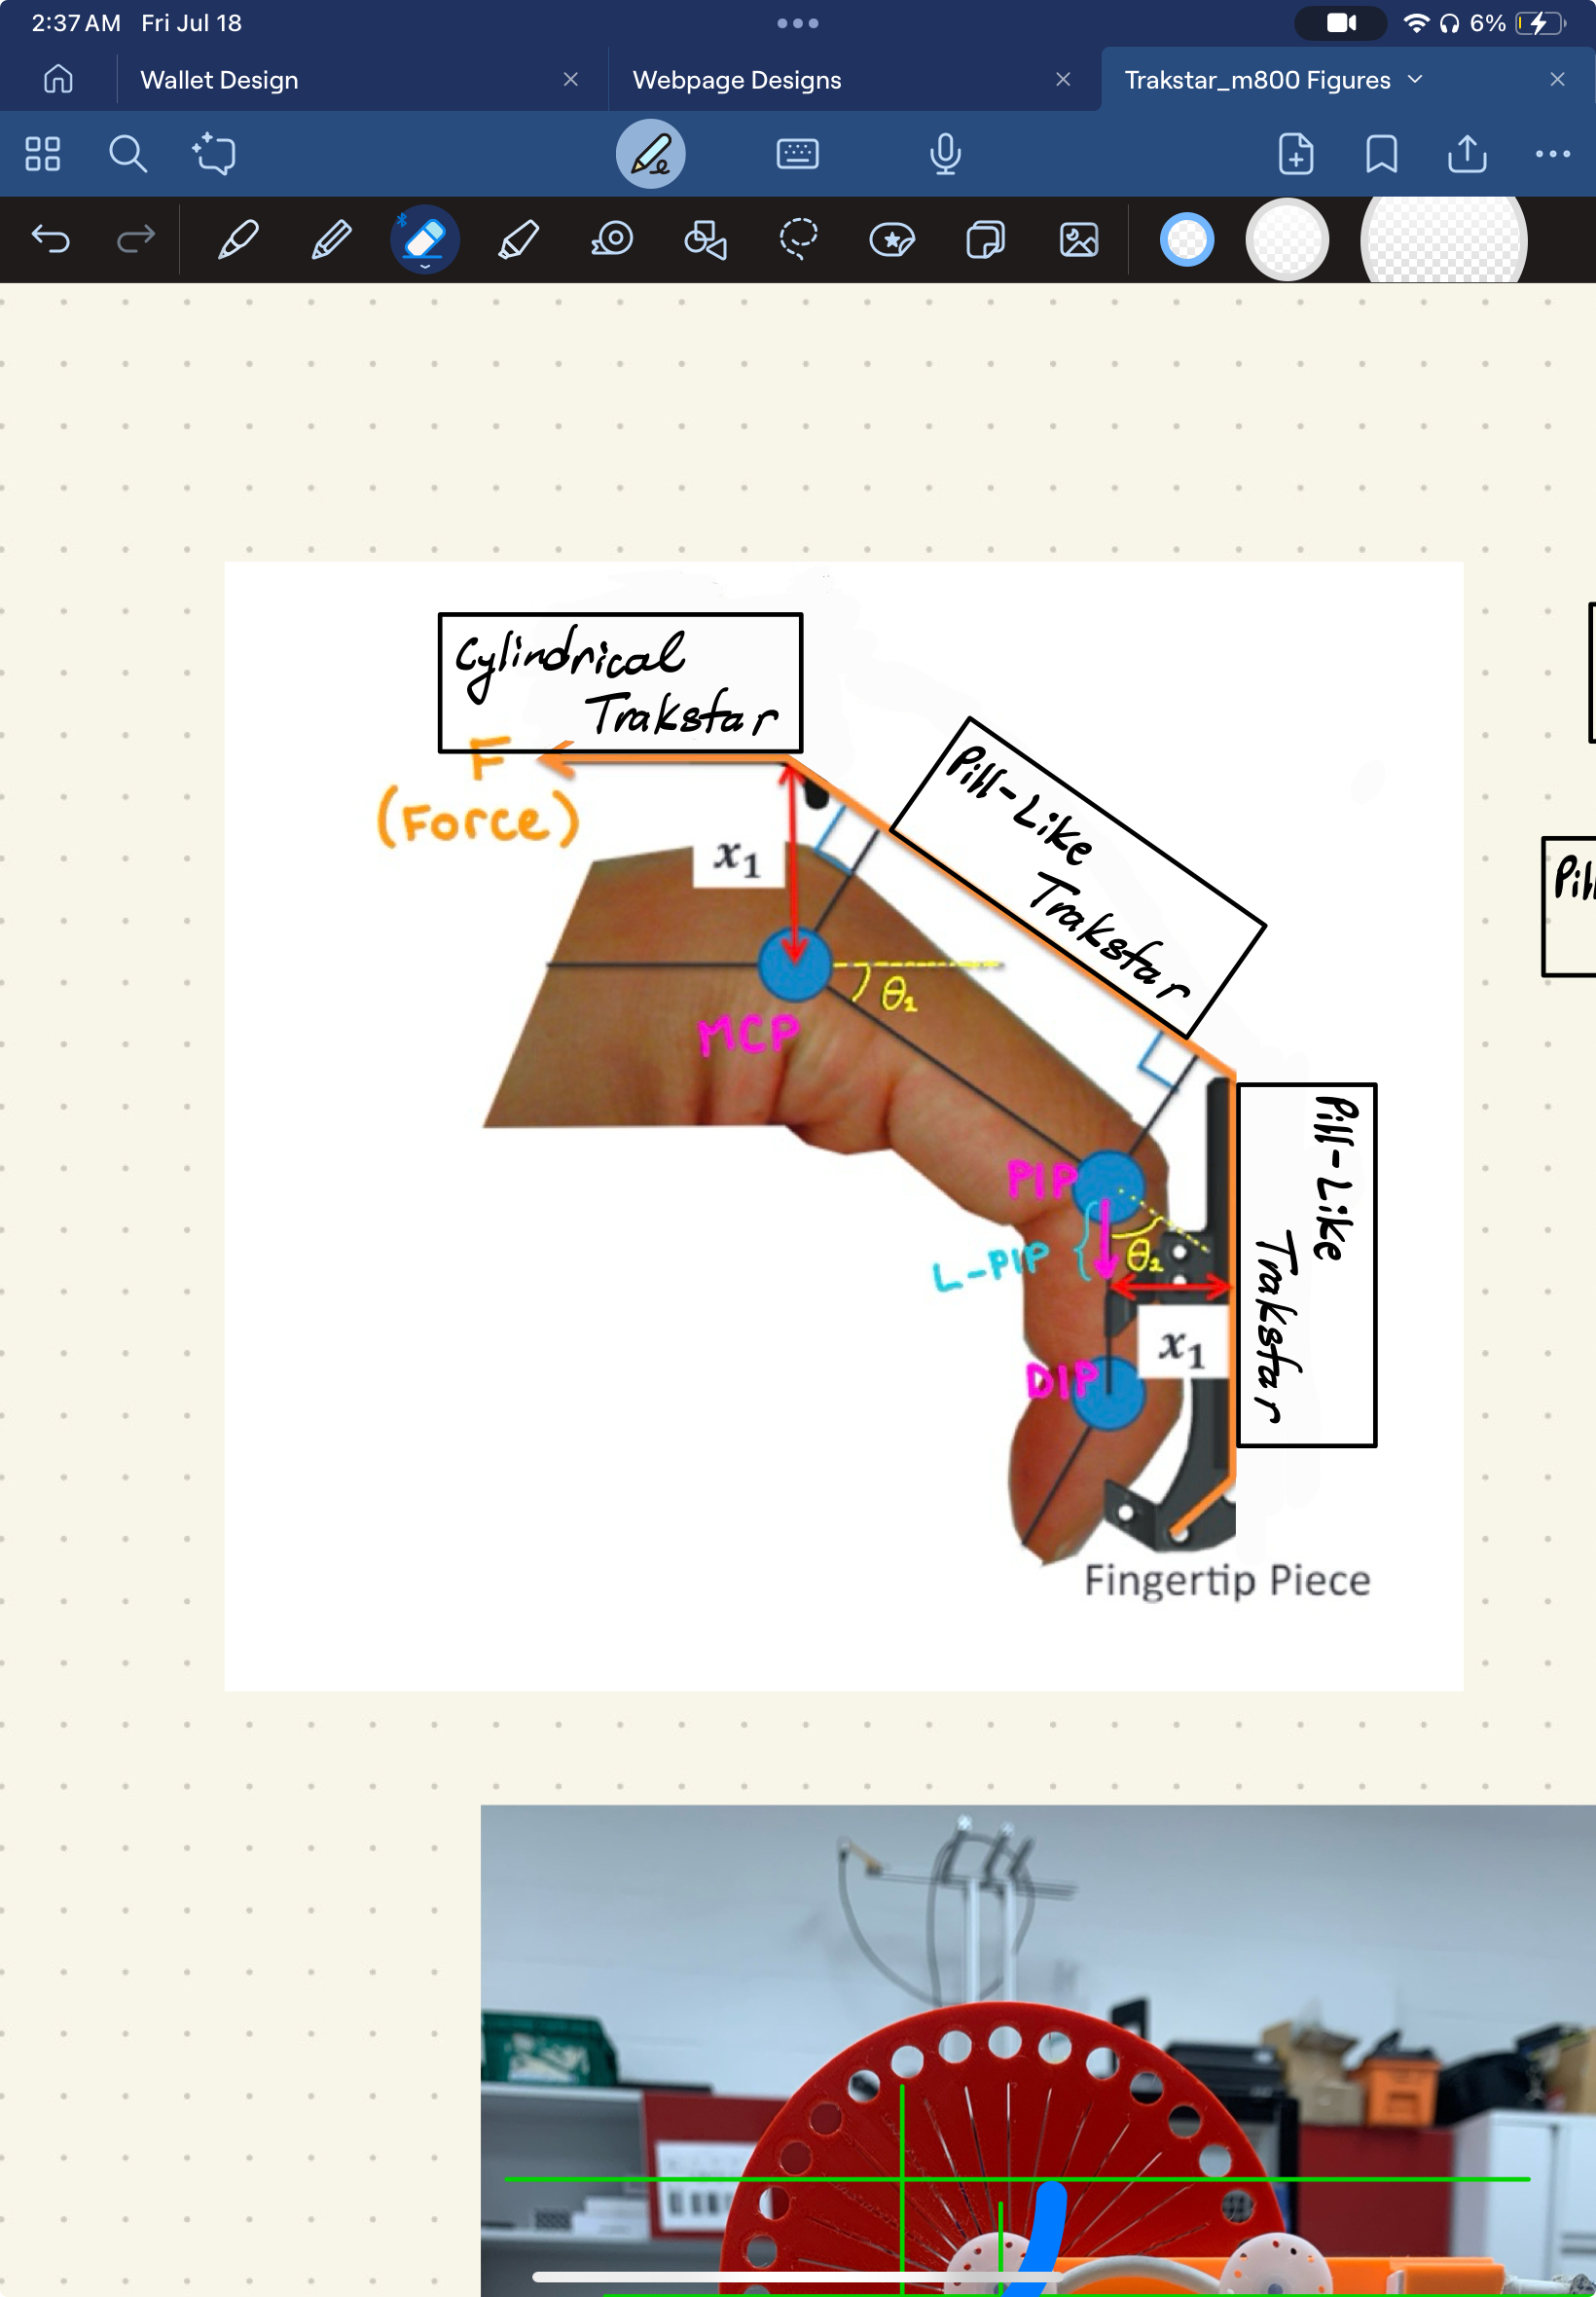 2:37 AM Fri Jul 18
6%
Wallet Design
Webpage Designs
Trakstar_m800 Figures
Cylindrical
Trakstar
F
(Force)
Pill-Like
Trakstar
x₁
θ₁
MCP
PIP
L-PIP
θ₂
x₁
DIP
Pill-Like
Trakstar
Fingertip Piece